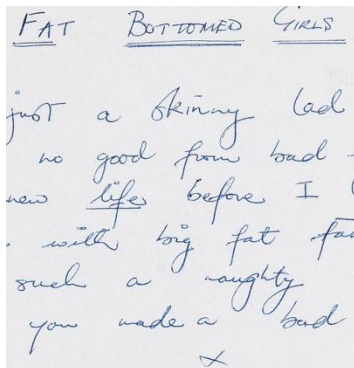 FAT BOTTOMED GIRLS
just a skinny lad
no good from bad -
new life before I
with big fat
such a naughty
you made a bad
x